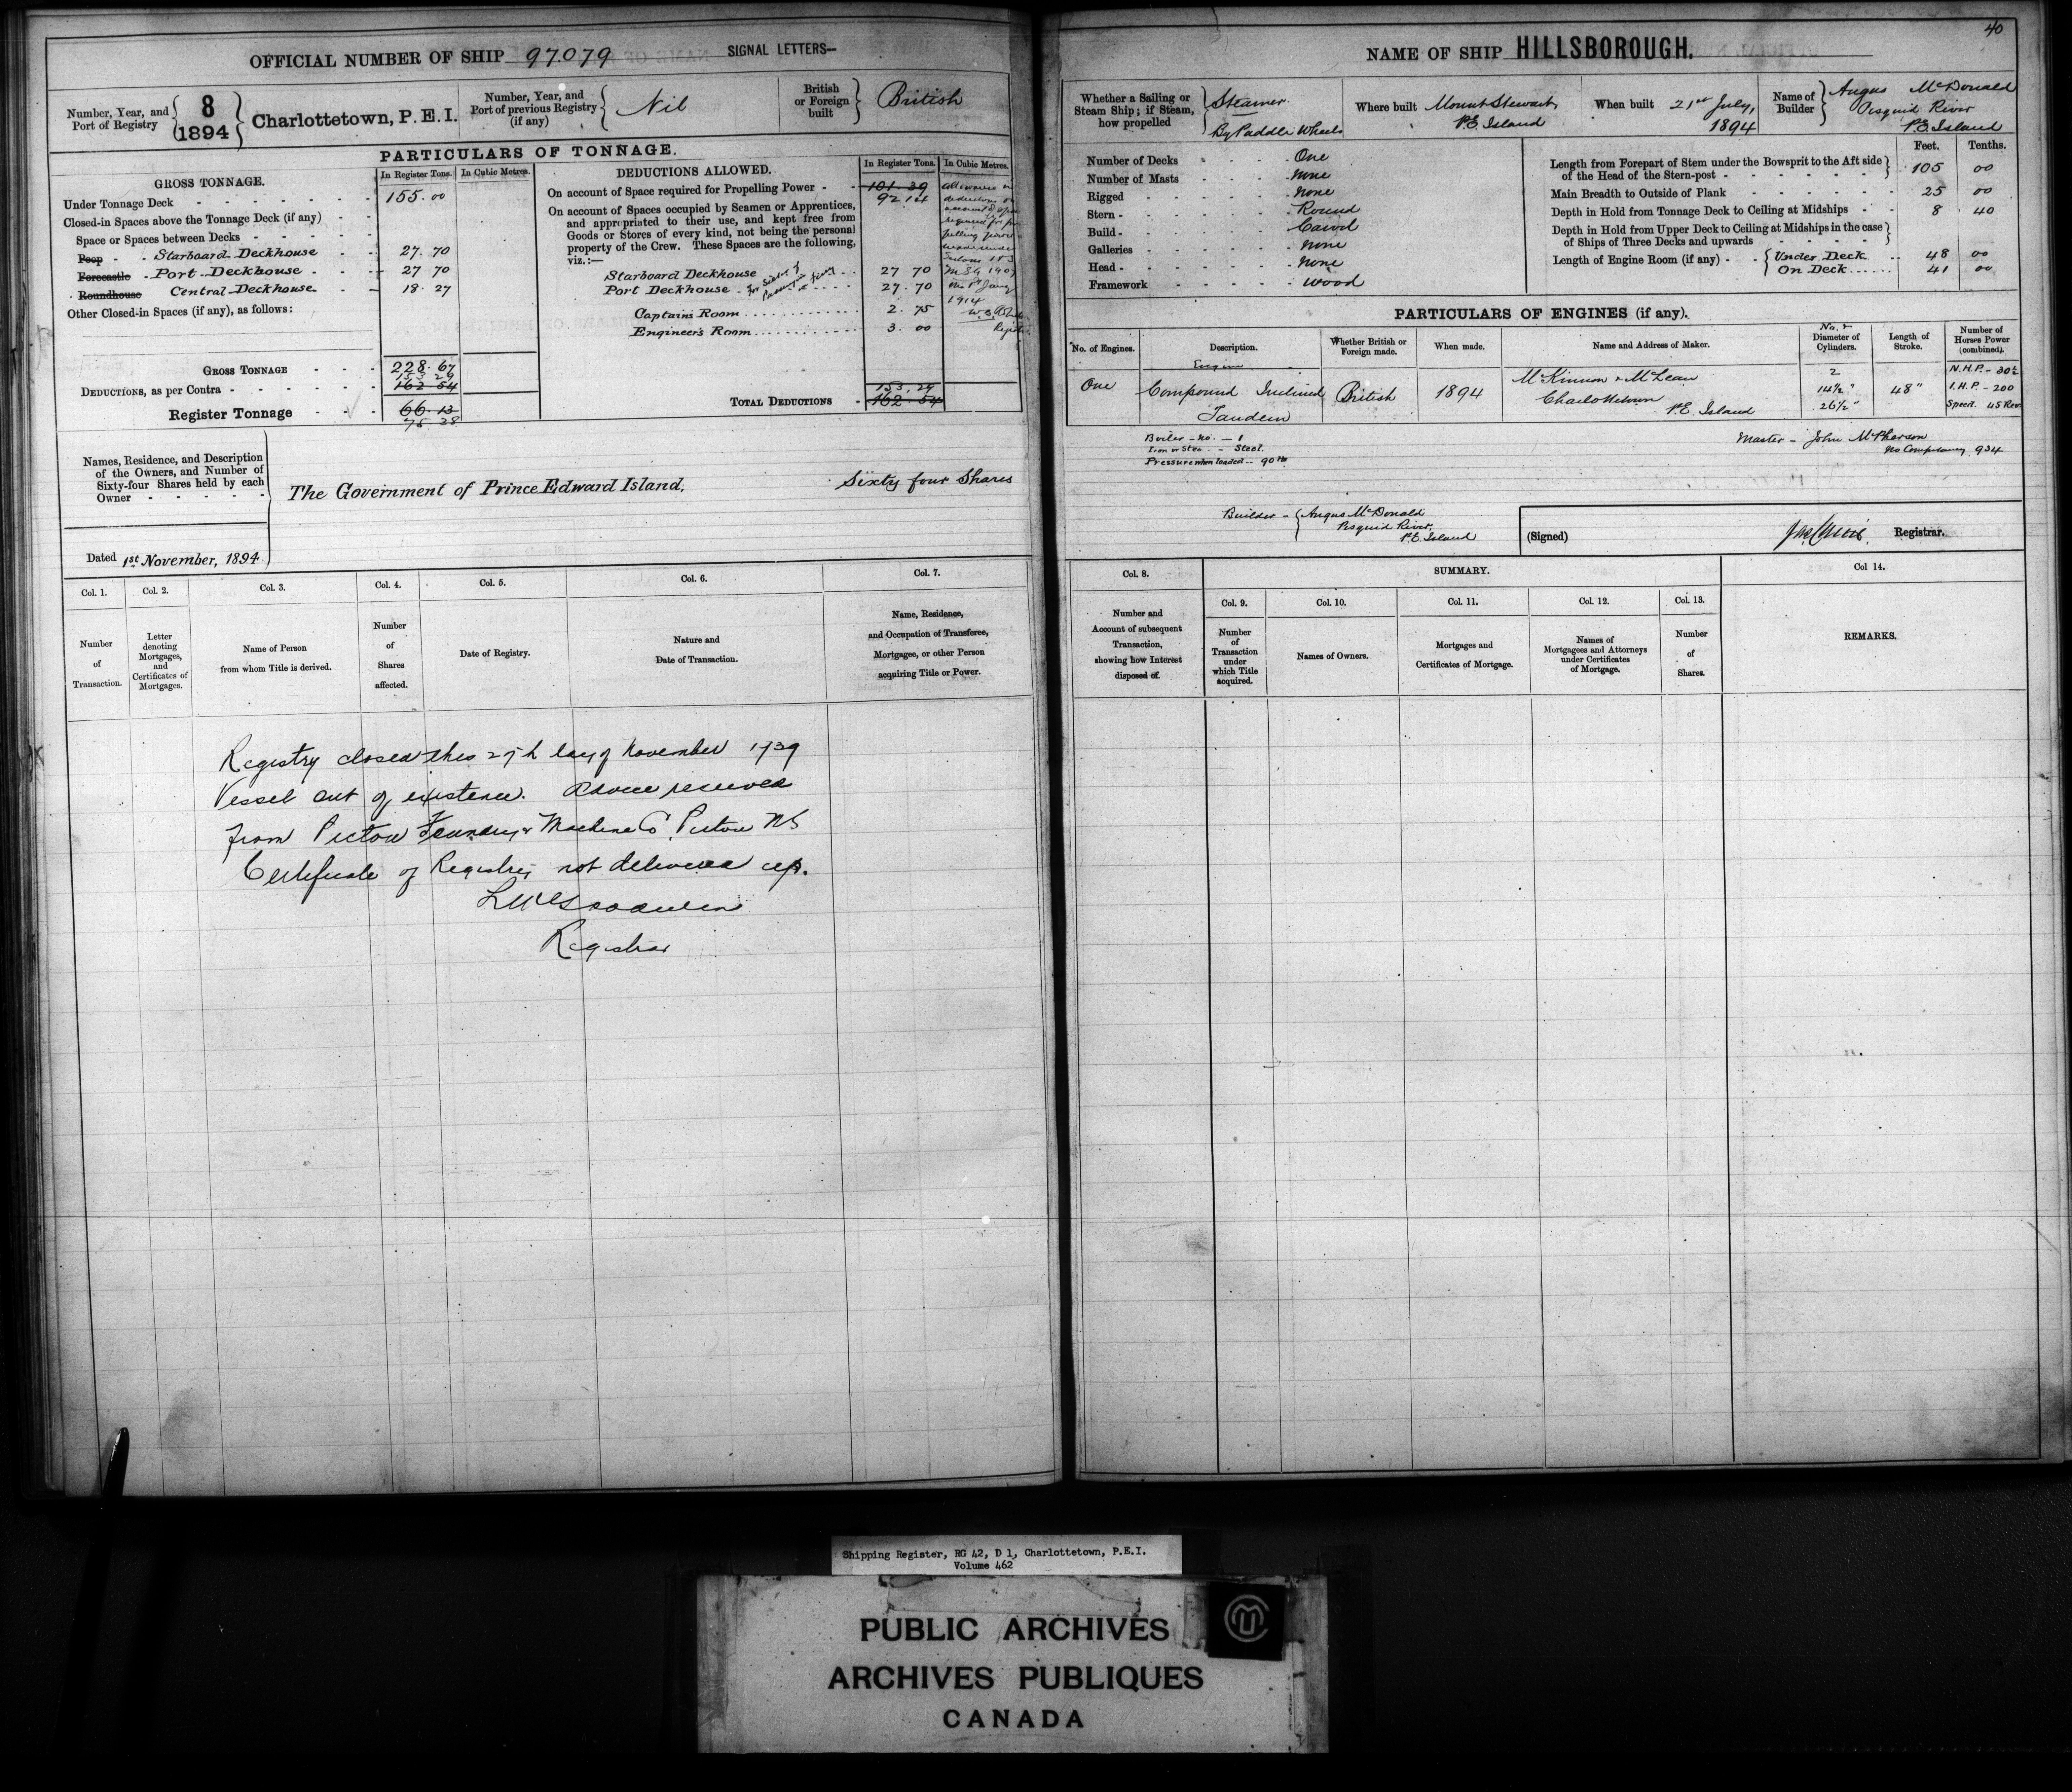 40
OFFICIAL NUMBER OF SHIP 97079 SIGNAL LETTERS—
Number, Year, and Port of Registry { 8 1894 } Charlottetown, P.E.I.
Number, Year, and Port of previous Registry (if any) { Nil
British or Foreign built } British
PARTICULARS OF TONNAGE.
GROSS TONNAGE. In Register Tons. In Cubic Metres.
Under Tonnage Deck 155.00
Closed-in Spaces above the Tonnage Deck (if any)
Space or Spaces between Decks
Poop Starboard Deckhouse 27.70
Forecastle Port Deckhouse 27 70
Roundhouse Central Deckhouse 18.27
Other Closed-in Spaces (if any), as follows:
GROSS TONNAGE 228.67
153 29
DEDUCTIONS, as per Contra 162 54
Register Tonnage 66.13
75 38
DEDUCTIONS ALLOWED. In Register Tons. In Cubic Metres.
On account of Space required for Propelling Power 101.39
92 14
On account of Spaces occupied by Seamen or Apprentices,
and appropriated to their use, and kept free from
Goods or Stores of every kind, not being the personal
property of the Crew. These Spaces are the following,
viz.:—
Starboard Deckhouse 27 70
Port Deckhouse 27.70
Captains Room 2.75
Engineer's Room 3.00
153.29
TOTAL DEDUCTIONS 162.54
Names, Residence, and Description
of the Owners, and Number of
Sixty-four Shares held by each
Owner
The Government of Prince Edward Island, Sixty four Shares
Dated 1st November, 1894
Col. 1. Col. 2. Col. 3. Col. 4. Col. 5. Col. 6. Col. 7.
Number of Transaction.
Letter denoting Mortgages, and Certificates of Mortgages.
Name of Person from whom Title is derived.
Number of Shares affected.
Date of Registry.
Nature and Date of Transaction.
Name, Residence, and Occupation of Transferee, Mortgagee, or other Person acquiring Title or Power.
Registry closed this 27th day of November 1939
Vessel out of existence. Advice received
from Pictou Foundry & Machine Co Pictou NS
Certificate of Registry not delivered up.
Registrar
NAME OF SHIP HILLSBOROUGH.
Whether a Sailing or Steam Ship; if Steam, how propelled } Steamer. By Paddle Wheels
Where built Mount Stewart, P.E. Island
When built 21st July, 1894
Name of Builder } Angus McDonald Pisquid River P.E. Island
Number of Decks One
Number of Masts None
Rigged None
Stern Round
Build Carvel
Galleries None
Head None
Framework Wood
Feet. Tenths.
Length from Forepart of Stem under the Bowsprit to the Aft side
of the Head of the Stern-post 105 00
Main Breadth to Outside of Plank 25 00
Depth in Hold from Tonnage Deck to Ceiling at Midships 8 40
Depth in Hold from Upper Deck to Ceiling at Midships in the case
of Ships of Three Decks and upwards
Length of Engine Room (if any) { Under Deck 48 00
On Deck 41 00
PARTICULARS OF ENGINES (if any).
No. of Engines. Description. Whether British or Foreign made. When made. Name and Address of Maker. No. & Diameter of Cylinders. Length of Stroke. Number of Horses Power (combined).
One Engine Compound Inclined Tandem British 1894 McKinnon & McLean Charlottetown P.E. Island 2 14½" 26½" 48" N.H.P. - 30½ I.H.P. - 200 Speed. 45 Rev
Boiler - No. - 1
Iron or Steel - Steel.
Pressure when loaded - 90 lbs
Master - John McPherson
No Competency 934
Builder - { Angus McDonald
Pisquid River,
P.E. Island
(Signed) Registrar.
Col. 8. SUMMARY. Col 14.
Col. 9. Col. 10. Col. 11. Col. 12. Col. 13.
Number and Account of subsequent Transaction, showing how Interest disposed of.
Number of Transaction under which Title acquired.
Names of Owners.
Mortgages and Certificates of Mortgage.
Names of Mortgagees and Attorneys under Certificates of Mortgage.
Number of Shares.
REMARKS.
Shipping Register, RG 42, D 1, Charlottetown, P.E.I.
Volume 462
PUBLIC ARCHIVES
ARCHIVES PUBLIQUES
CANADA